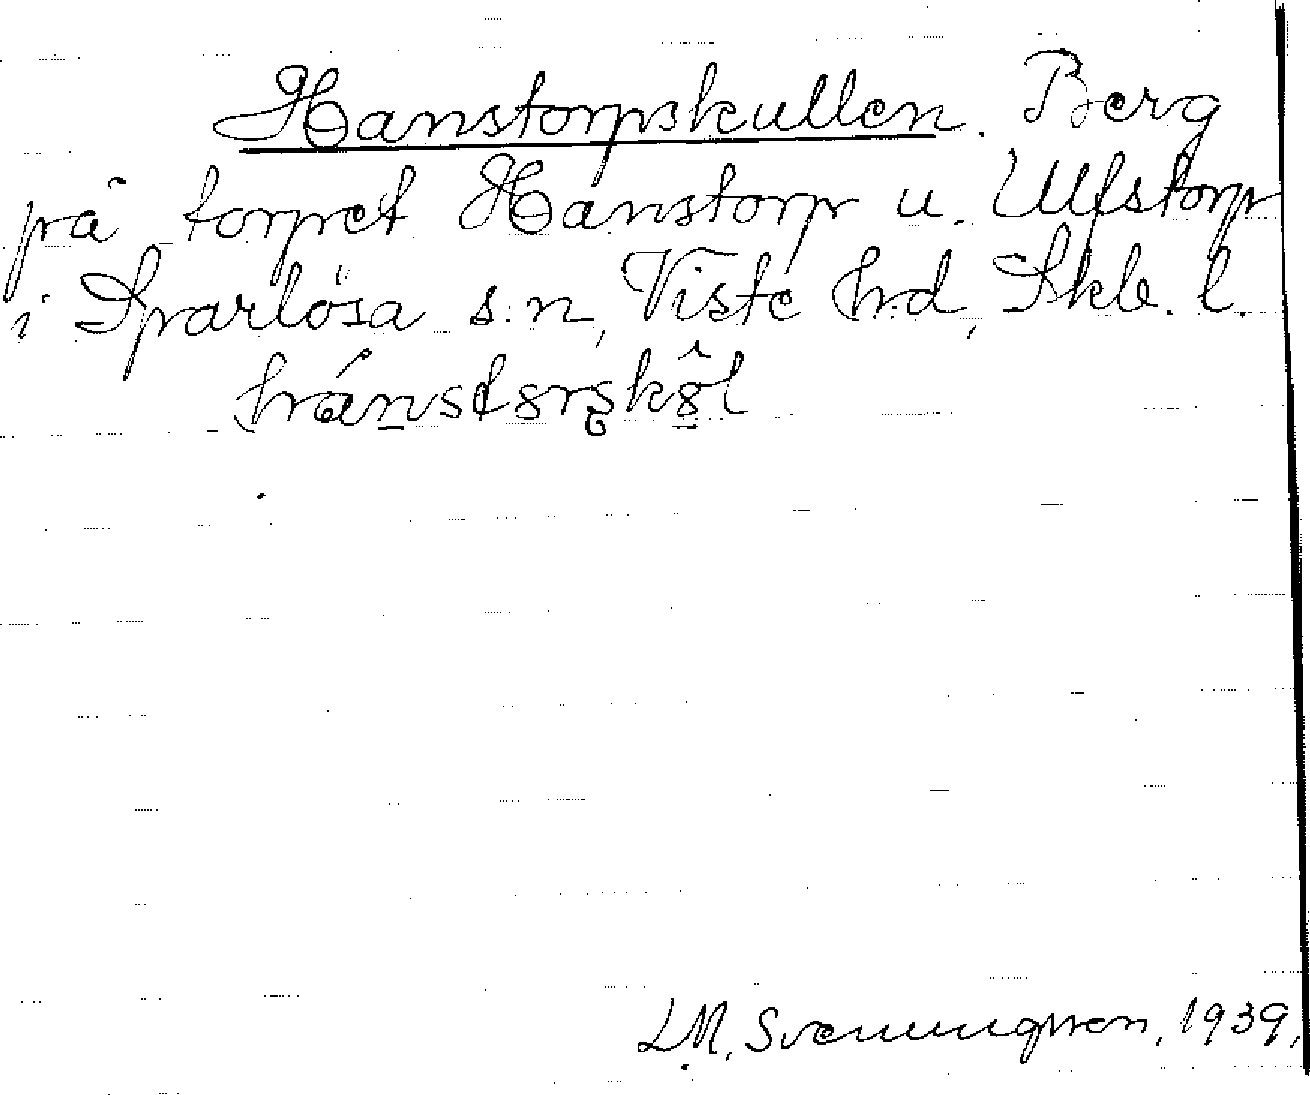 Hanstorpskullen. Berg
på torpet Hanstorp u. Ulfstorp
i Sparlösa s:n, Viste h:d, Skb. l.
L.M. Svenungsson, 1939.